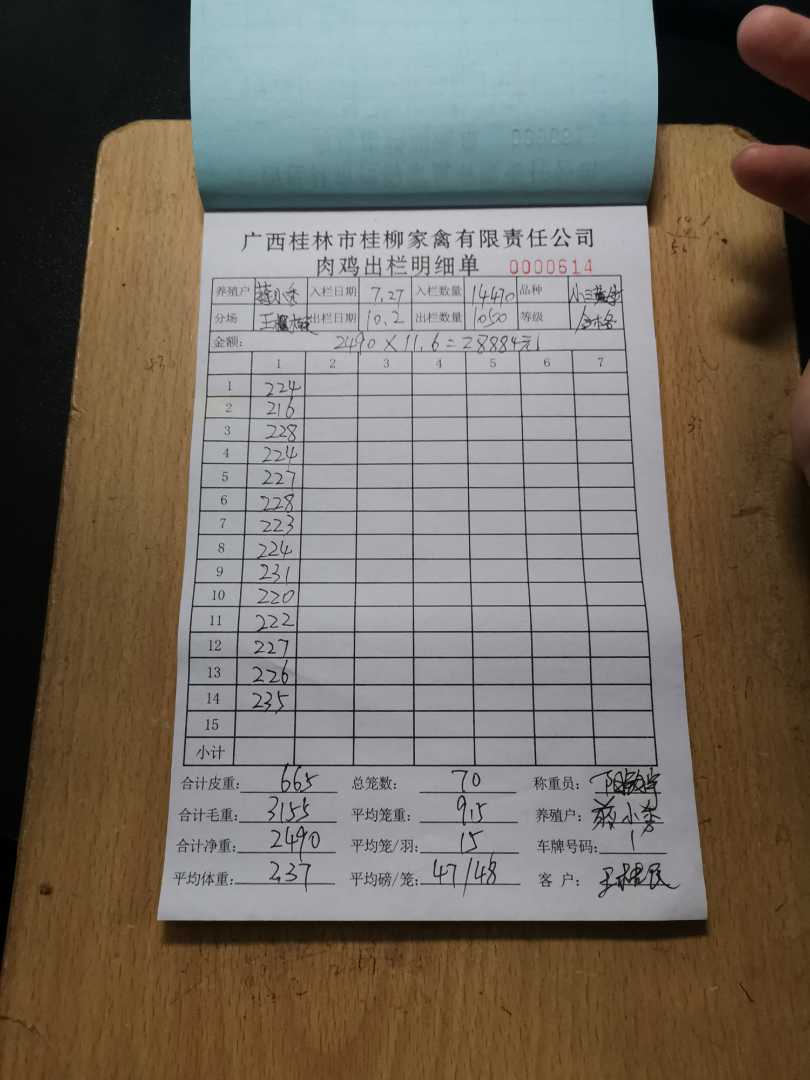 广西桂林市桂柳家禽有限责任公司
肉鸡出栏明细单 0000614
养殖户 蒋小秀 入栏日期 7.27 入栏数量 14470 品种 小三黄
分场 出栏日期 10.2 出栏数量 1050 等级
金额: 2490×11.6=28884元
1 2 3 4 5 6 7
1 224
2 216
3 228
4 224
5 227
6 228
7 223
8 224
9 231
10 220
11 222
12 227
13 226
14 235
15
小计
合计皮重: 665 总笼数: 70 称重员:
合计毛重: 3155 平均笼重: 9.5 养殖户: 蒋小秀
合计净重: 2490 平均笼/羽: 15 车牌号码: 1
平均体重: 2.37 平均磅/笼: 47/48 客 户: